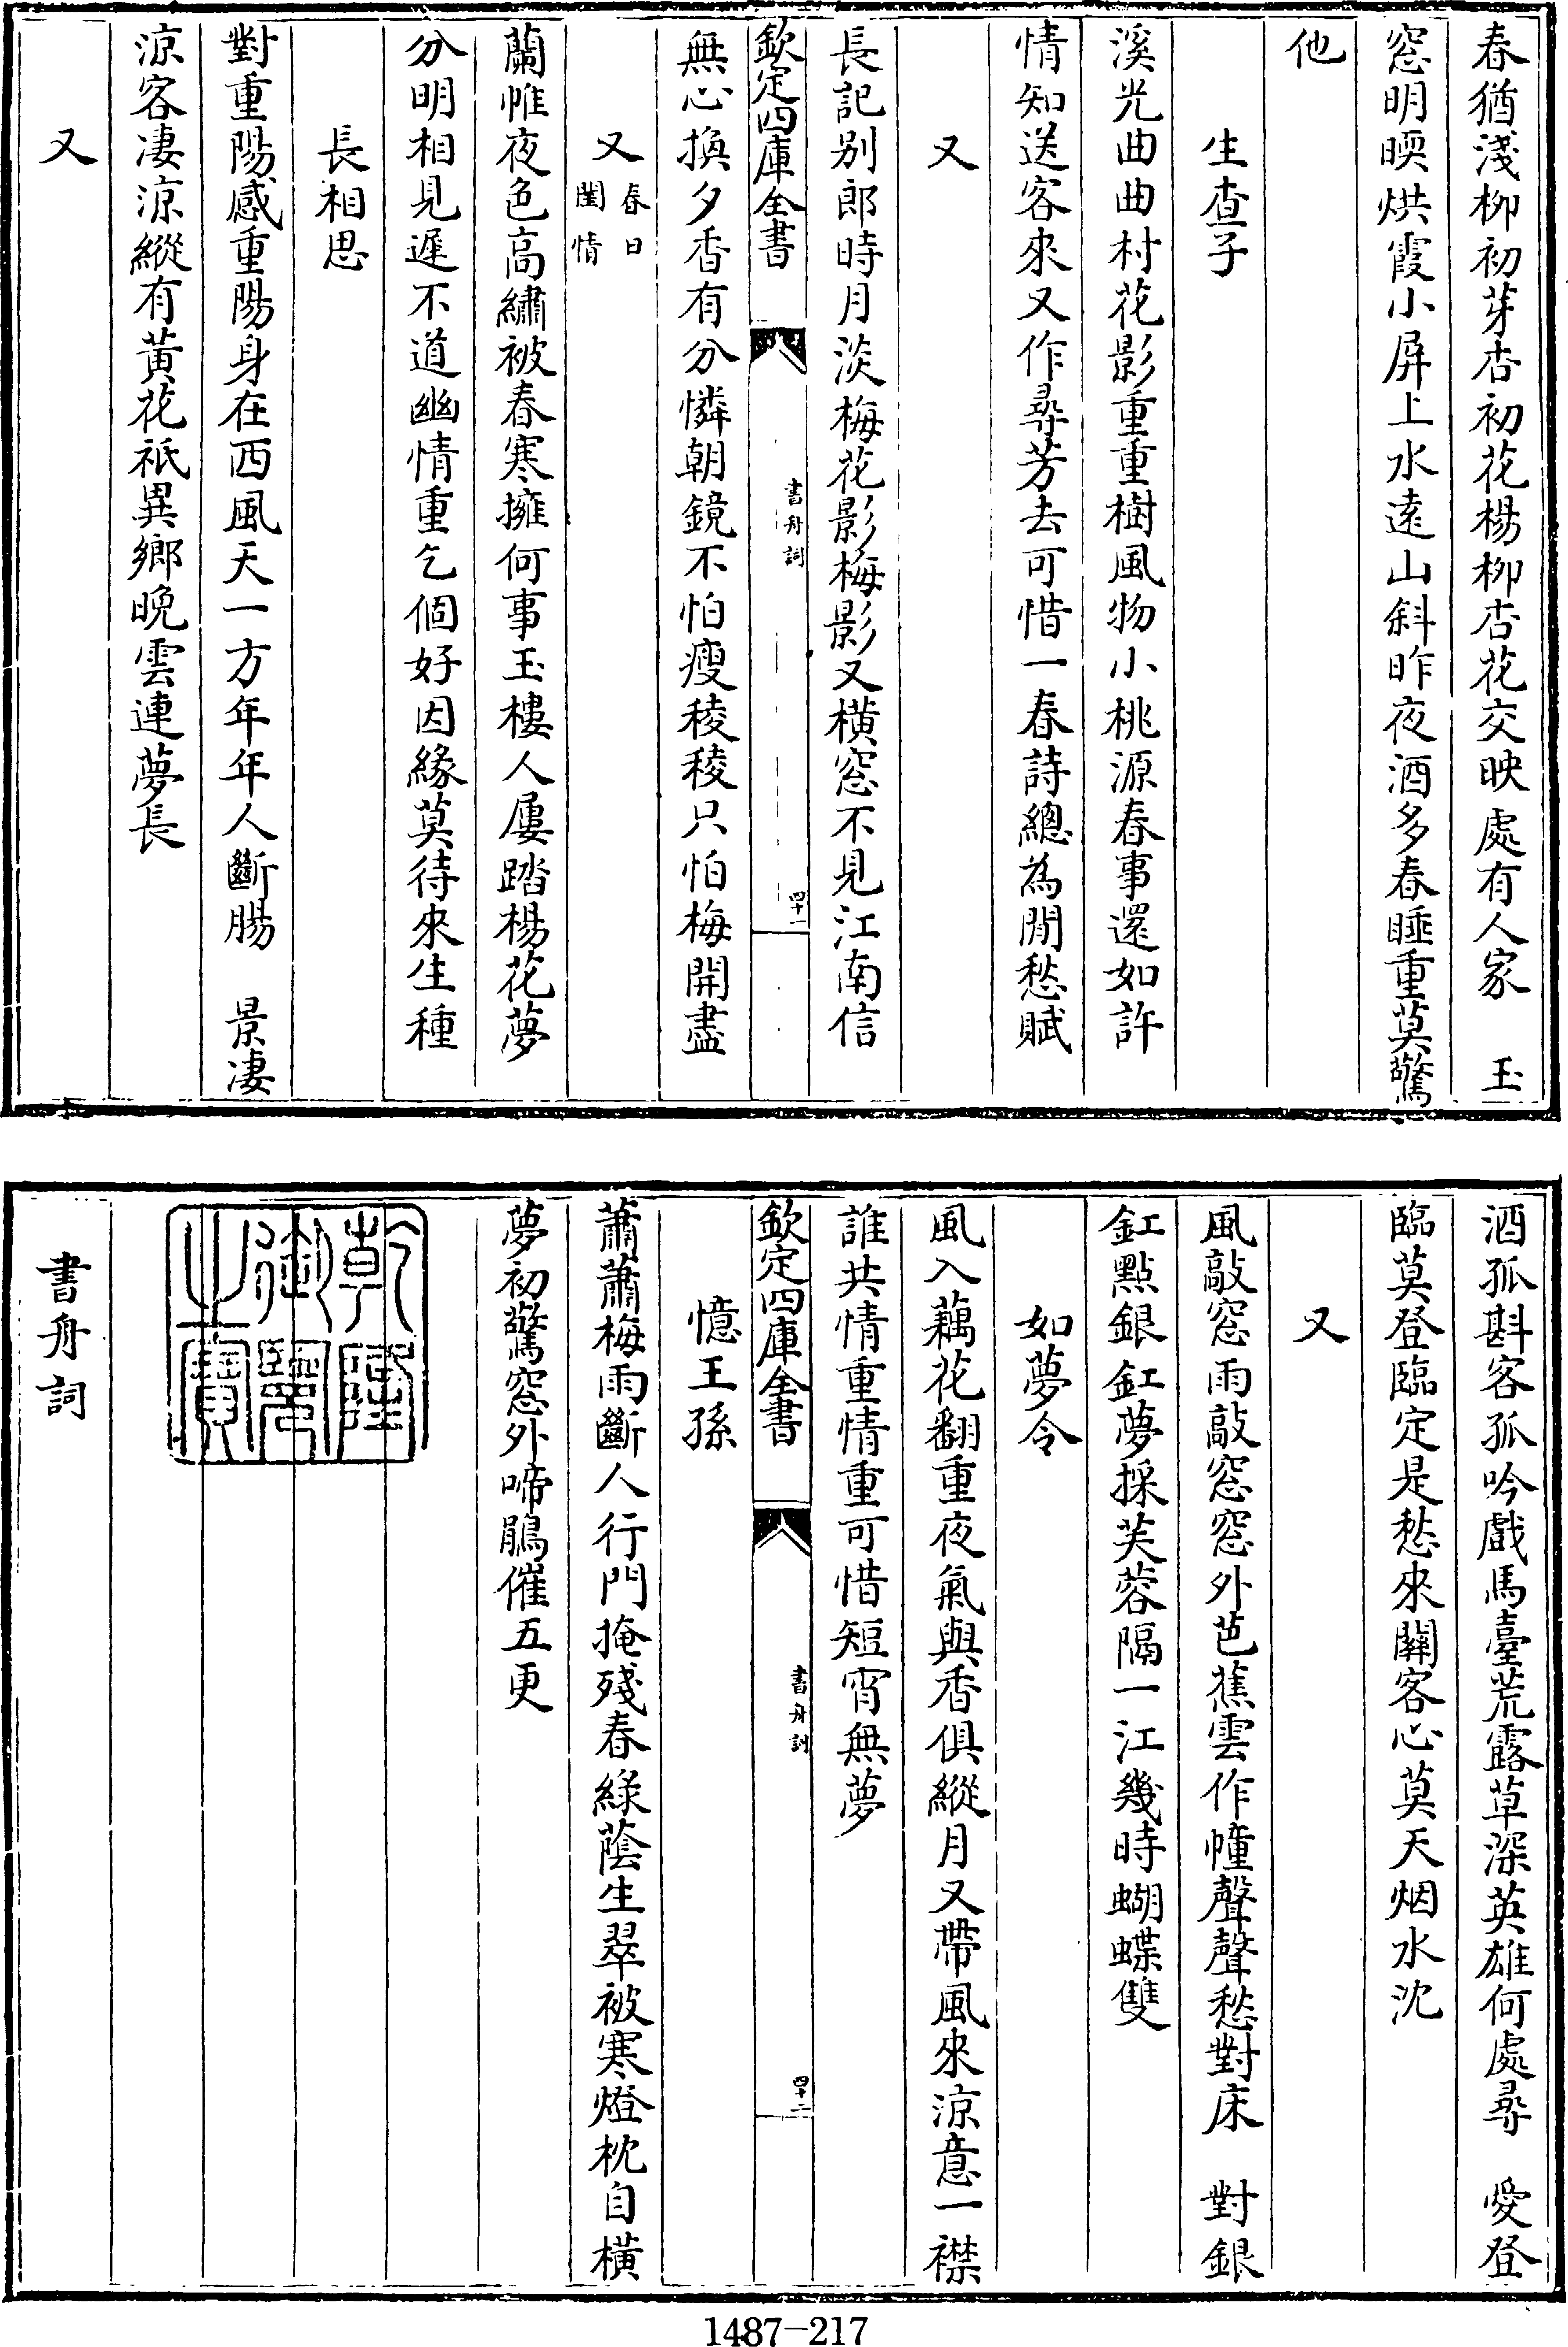 春猶淺柳初芽杏初花楊柳杏花交映處有人家　玉
窓明暎烘霞小屏上水逺山斜昨夜酒多春睡重莫驚
他
生查子
溪光曲曲村花影重重樹風物小桃源春事還如許
情知送客來又作尋芳去可惜一春詩總為閒愁賦
又
長記别郎時月淡梅花影梅影又橫窓不見江南信
欽定四庫全書
書舟詞
四十一
無心換夕香有分憐朝鏡不怕瘦稜稜只怕梅開盡
又春日閨情
蘭帷夜色高繡被春寒擁何事玉樓人屢踏楊花夢
分明相見遲不道幽情重乞個好因緣莫待來生種
長相思
對重陽感重陽身在西風天一方年年人斷腸　景凄
涼客凄涼縱有黃花祇異鄉晩雲連夢長
又
酒孤斟客孤吟戲馬臺荒露草深英雄何處尋　愛登
臨莫登臨定是愁來關客心莫天烟水沈
又
風敲窓雨敲窓窓外芭蕉雲作幢聲聲愁對床　對銀
釭點銀釭夢採芙蓉隔一江幾時蝴蝶雙
如夢令
風入藕花翻重夜氣與香俱縱月又帶風來涼意一襟
誰共情重情重可惜短宵無夢
欽定四庫全書
書舟詞
四十二
憶王孫
蕭蕭梅雨斷人行門掩殘春綠蔭生翠被寒燈枕自橫
夢初驚窓外啼鵑催五更
乾隆御覽之寶
書舟詞
1487-217